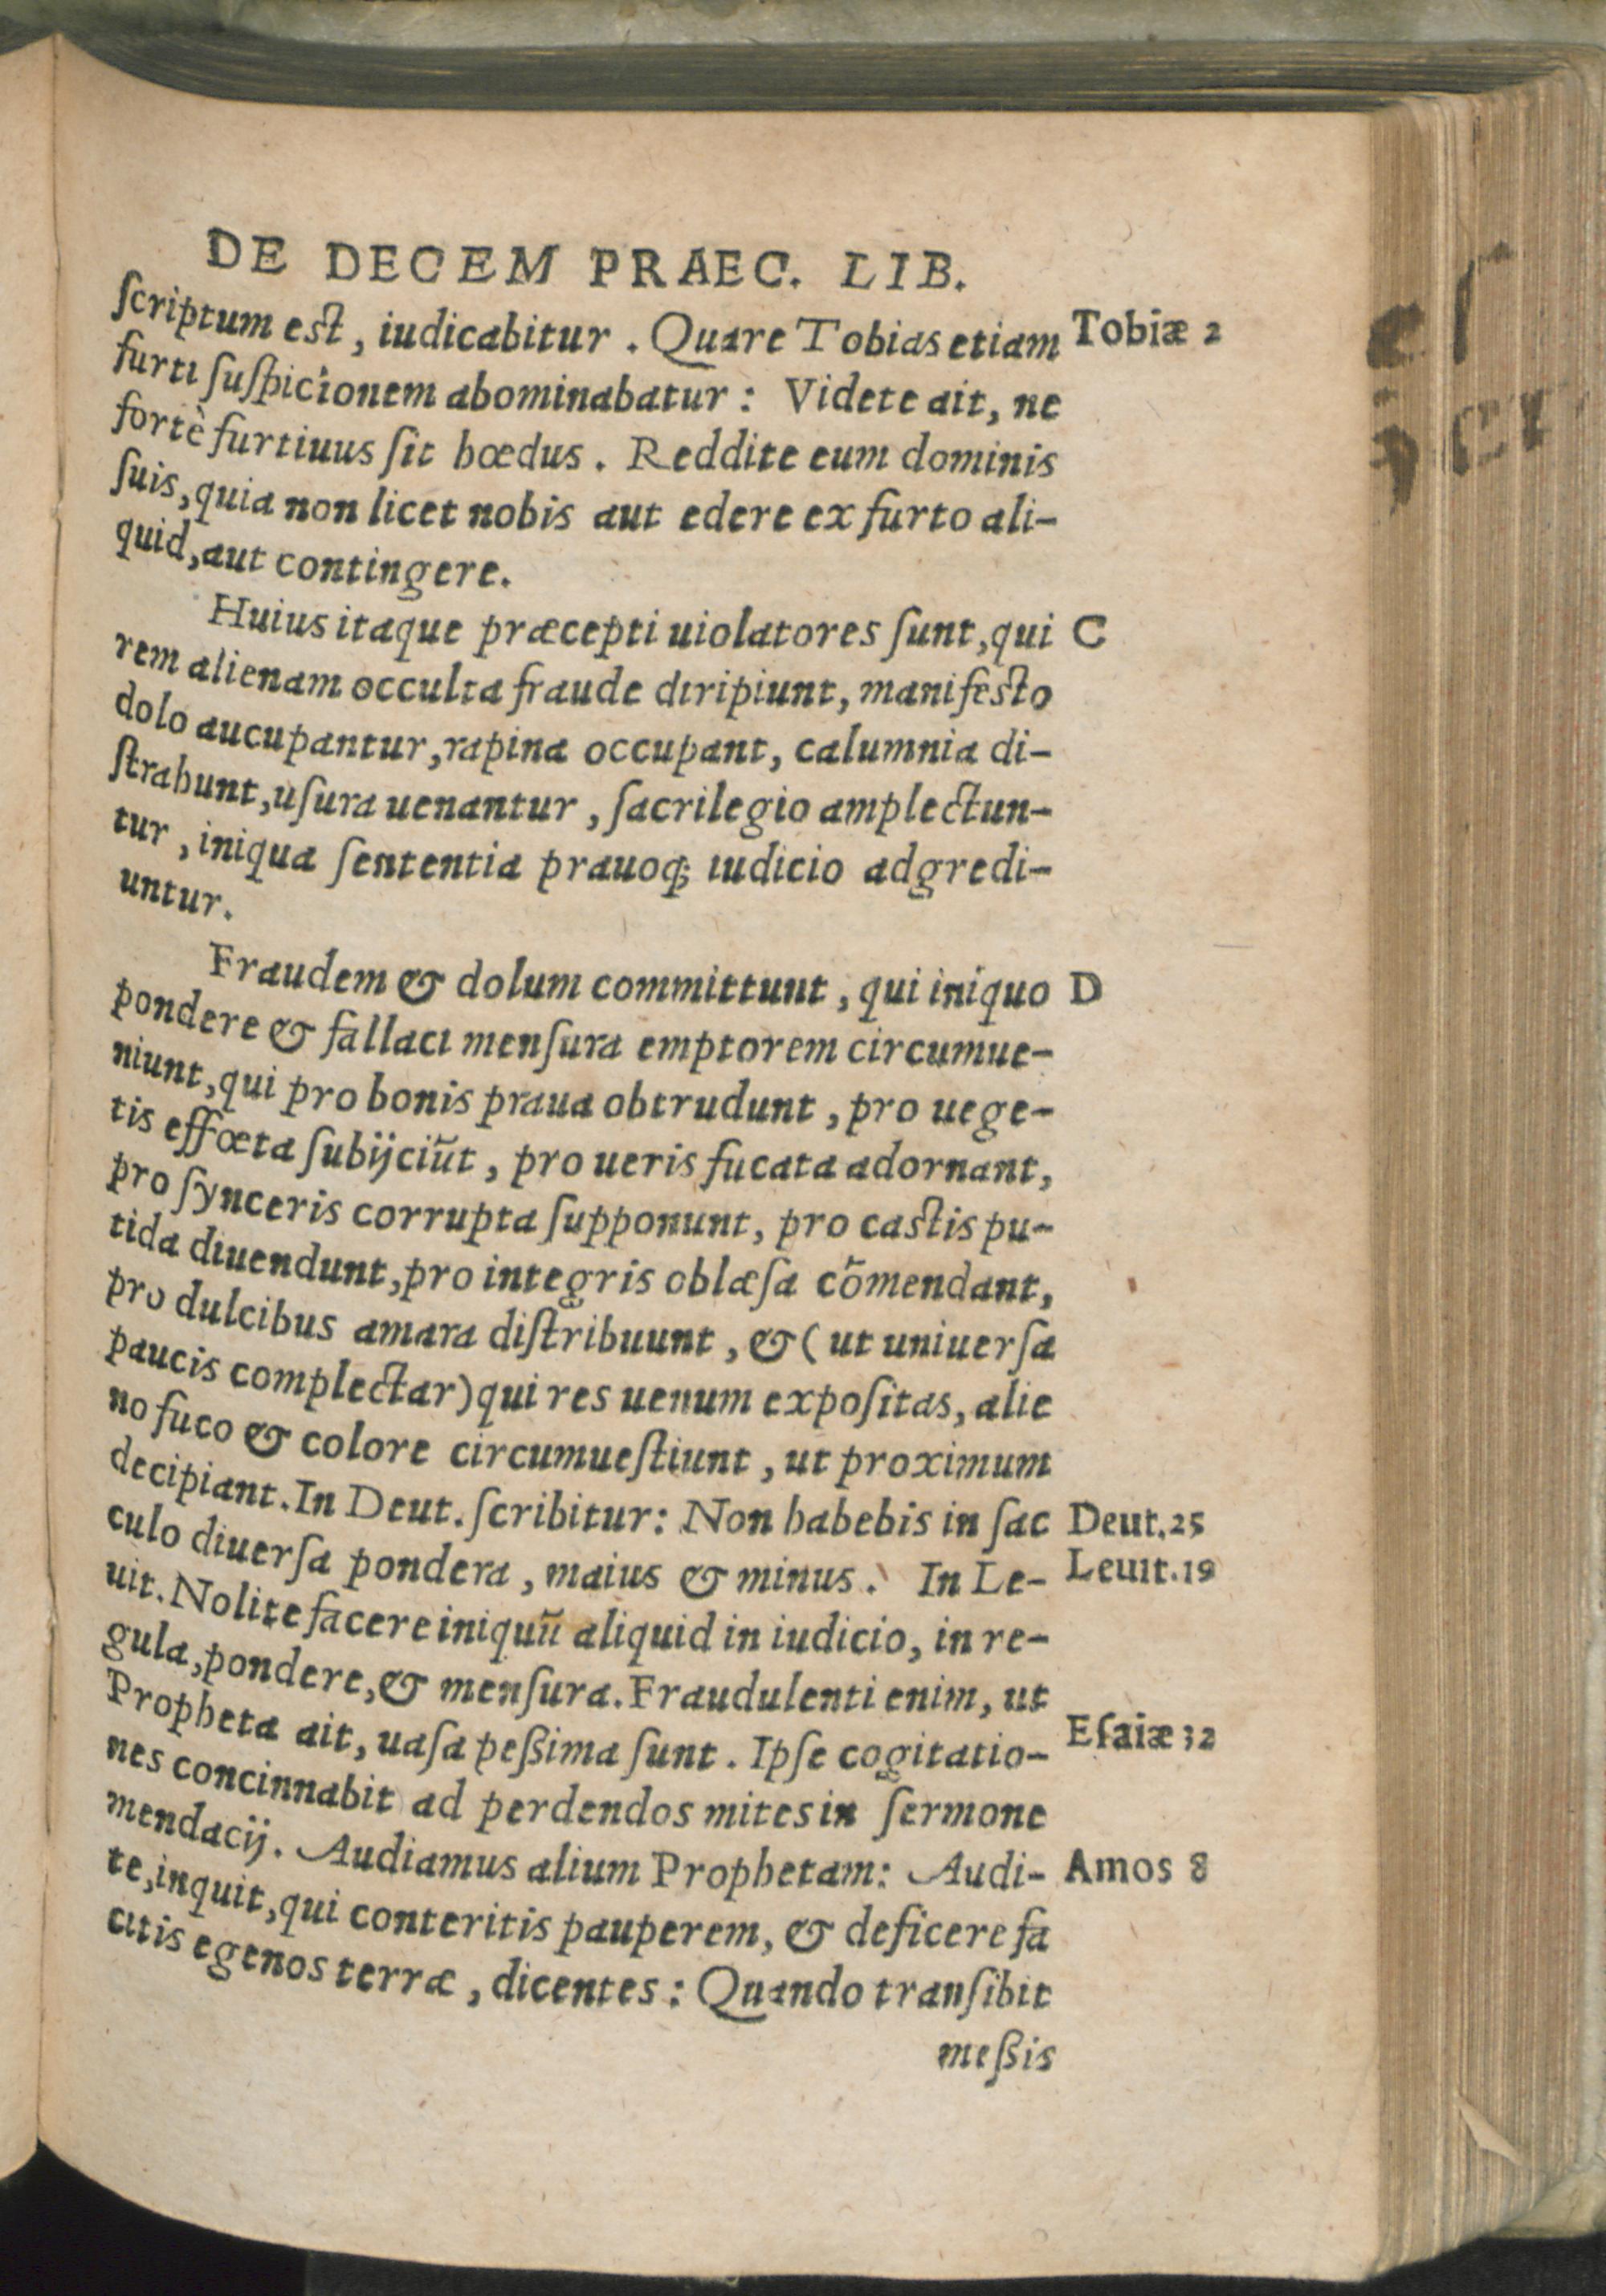 DE DECEM PRAEC. LIB.
ſcriptum est, iudicabitur. Quare Tobias etiam Tobiæ 2
furti ſuſpicionem abominabatur: Videte ait, ne
fortè furtiuus ſit hœdus. Reddite eum dominis
ſuis, quia non licet nobis aut edere ex furto ali-
quid, aut contingere.
Huius itaque præcepti uiolatores ſunt, qui C
rem alienam occulta fraude diripiunt, manifesto
dolo aucupantur, rapina occupant, calumnia di-
ſtrahunt, uſura uenantur, ſacrilegio amplectun-
tur, iniqua ſententia prauoq; iudicio adgredi-
untur.
Fraudem & dolum committunt, qui iniquo D
pondere & fallaci menſura emptorem circumue-
niunt, qui pro bonis praua obtrudunt, pro uege-
tis effœta ſubijciūt, pro ueris fucata adornant,
pro ſynceris corrupta ſupponunt, pro castis pu-
tida diuendunt, pro integris oblæſa cōmendant,
pro dulcibus amara diſtribuunt, & (ut uniuerſa
paucis complectar) qui res uenum expoſitas, alie
no fuco & colore circumueſtiunt, ut proximum
decipiant. In Deut. ſcribitur: Non habebis in ſac Deut. 25
culo diuerſa pondera, maius & minus. In Le- Leuit. 19
uit. Nolite facere iniquū aliquid in iudicio, in re-
gula, pondere, & menſura. Fraudulenti enim, ut
Propheta ait, uaſa peßima ſunt. Ipſe cogitatio- Eſaiæ 32
nes concinnabit ad perdendos mites in ſermone
mendacij. Audiamus alium Prophetam: Audi- Amos 8
te, inquit, qui conteritis pauperem, & deficere fa
citis egenos terræ, dicentes: Quando tranſibit
meßis